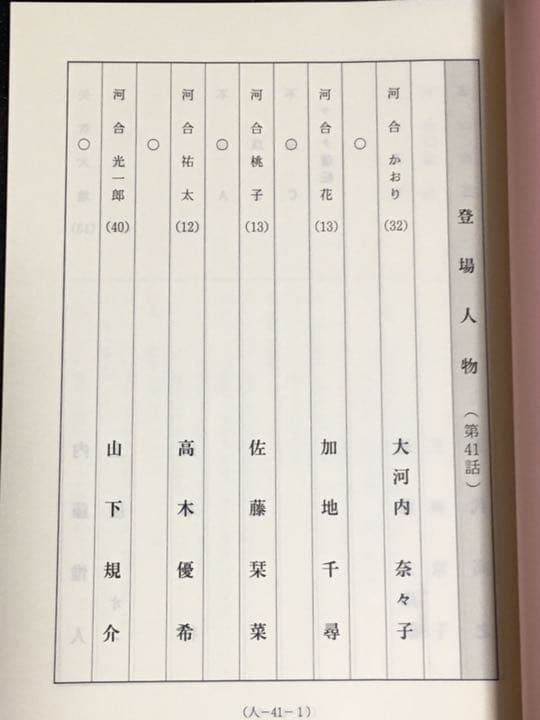 登場人物（第41話）
河合かおり（32） 大河内奈々子
○
河合一花（13） 加地千尋
○
河合桃子（13） 佐藤栞菜
○
河合祐太（12） 高木優希
○
河合光一郎（40） 山下規介
○
（人−41−1）